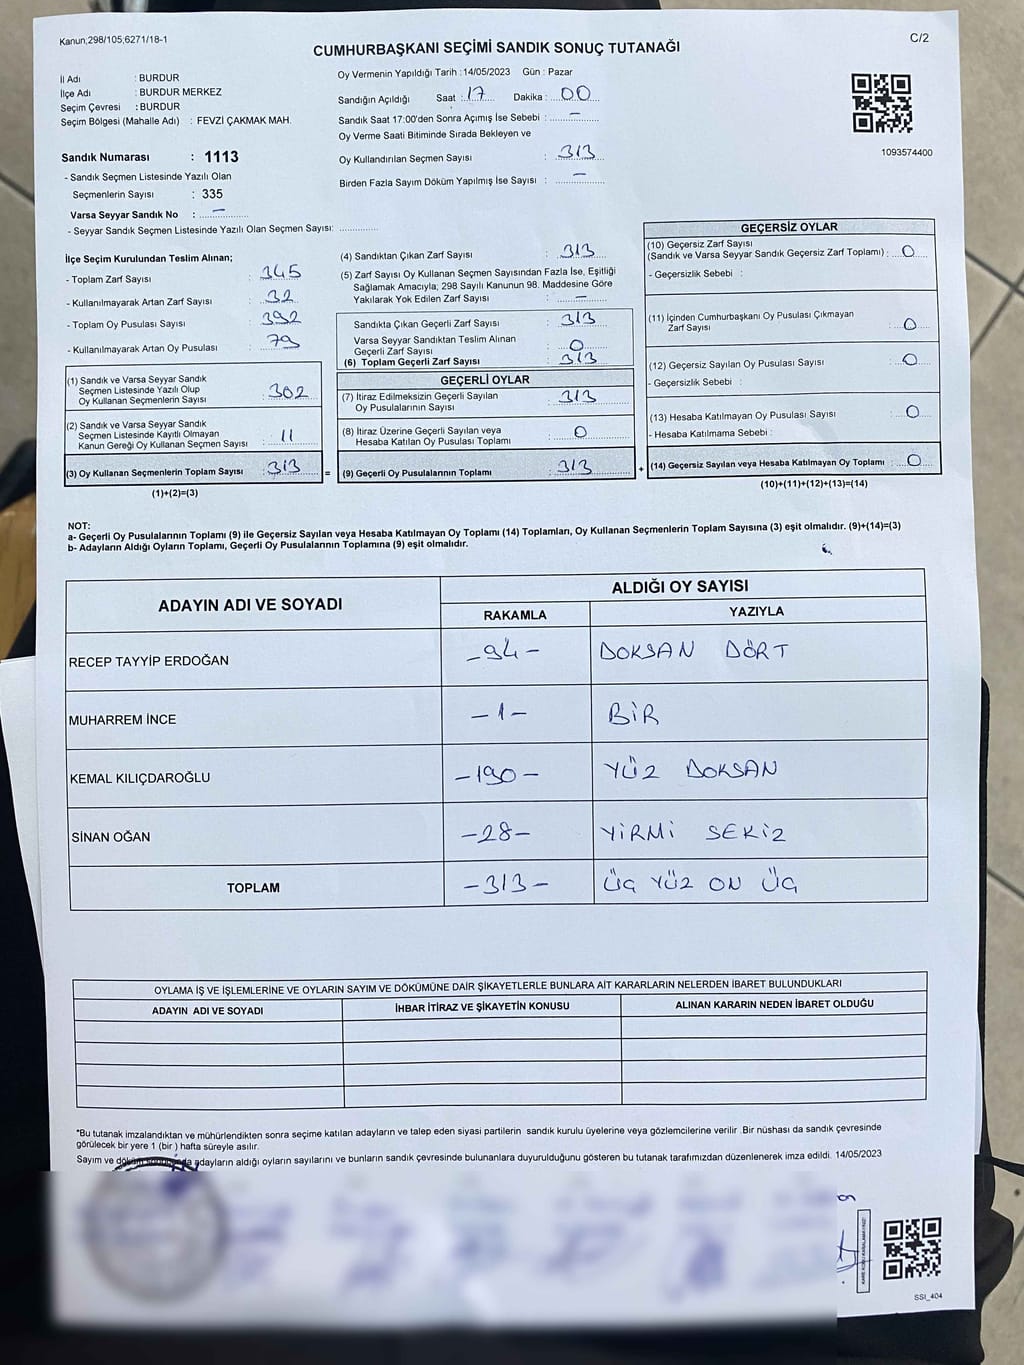 Kanun;298/105;6271/18-1
C/2
CUMHURBAŞKANI SEÇİMİ SANDIK SONUÇ TUTANAĞI
İl Adı : BURDUR
İlçe Adı : BURDUR MERKEZ
Seçim Çevresi : BURDUR
Seçim Bölgesi (Mahalle Adı) : FEVZİ ÇAKMAK MAH.
Sandık Numarası : 1113
- Sandık Seçmen Listesinde Yazılı Olan
Seçmenlerin Sayısı : 335
Varsa Seyyar Sandık No : –
- Seyyar Sandık Seçmen Listesinde Yazılı Olan Seçmen Sayısı:
Oy Vermenin Yapıldığı Tarih :14/05/2023 Gün : Pazar
Sandığın Açıldığı Saat : 17 Dakika : 00
Sandık Saat 17:00'den Sonra Açımış İse Sebebi : –
Oy Verme Saati Bitiminde Sırada Bekleyen ve
Oy Kullandırılan Seçmen Sayısı : 313
Birden Fazla Sayım Döküm Yapılmış İse Sayısı : –
1093574400
İlçe Seçim Kurulundan Teslim Alınan;
- Toplam Zarf Sayısı : 345
- Kullanılmayarak Artan Zarf Sayısı : 32
- Toplam Oy Pusulası Sayısı : 392
- Kullanılmayarak Artan Oy Pusulası : 79
(1) Sandık ve Varsa Seyyar Sandık
Seçmen Listesinde Yazılı Olup
Oy Kullanan Seçmenlerin Sayısı : 302
(2) Sandık ve Varsa Seyyar Sandık
Seçmen Listesinde Kayıtlı Olmayan
Kanun Gereği Oy Kullanan Seçmen Sayısı : 11
(3) Oy Kullanan Seçmenlerin Toplam Sayısı : 313
(1)+(2)=(3)
=
(4) Sandıktan Çıkan Zarf Sayısı : 313
(5) Zarf Sayısı Oy Kullanan Seçmen Sayısından Fazla İse, Eşitliği
Sağlamak Amacıyla; 298 Sayılı Kanunun 98. Maddesine Göre
Yakılarak Yok Edilen Zarf Sayısı : –
Sandıkta Çıkan Geçerli Zarf Sayısı : 313
Varsa Seyyar Sandıktan Teslim Alınan
Geçerli Zarf Sayısı : 0
(6) Toplam Geçerli Zarf Sayısı : 313
GEÇERLİ OYLAR
(7) İtiraz Edilmeksizin Geçerli Sayılan
Oy Pusulalarının Sayısı : 313
(8) İtiraz Üzerine Geçerli Sayılan veya
Hesaba Katılan Oy Pusulası Toplamı : 0
(9) Geçerli Oy Pusulalarının Toplamı : 313
+
GEÇERSİZ OYLAR
(10) Geçersiz Zarf Sayısı
(Sandık ve Varsa Seyyar Sandık Geçersiz Zarf Toplamı) : 0
- Geçersizlik Sebebi :
(11) İçinden Cumhurbaşkanı Oy Pusulası Çıkmayan
Zarf Sayısı : 0
(12) Geçersiz Sayılan Oy Pusulası Sayısı : 0
- Geçersizlik Sebebi :
(13) Hesaba Katılmayan Oy Pusulası Sayısı : 0
- Hesaba Katılmama Sebebi :
(14) Geçersiz Sayılan veya Hesaba Katılmayan Oy Toplamı : 0
(10)+(11)+(12)+(13)=(14)
NOT:
a- Geçerli Oy Pusulalarının Toplamı (9) ile Geçersiz Sayılan veya Hesaba Katılmayan Oy Toplamı (14) Toplamları, Oy Kullanan Seçmenlerin Toplam Sayısına (3) eşit olmalıdır. (9)+(14)=(3)
b- Adayların Aldığı Oyların Toplamı, Geçerli Oy Pusulalarının Toplamına (9) eşit olmalıdır.
ADAYIN ADI VE SOYADI
ALDIĞI OY SAYISI
RAKAMLA YAZIYLA
RECEP TAYYİP ERDOĞAN -94- DOKSAN DÖRT
MUHARREM İNCE -1- BİR
KEMAL KILIÇDAROĞLU -190- YÜZ DOKSAN
SİNAN OĞAN -28- YİRMİ SEKİZ
TOPLAM -313- ÜÇ YÜZ ON ÜÇ
OYLAMA İŞ VE İŞLEMLERİNE VE OYLARIN SAYIM VE DÖKÜMÜNE DAİR ŞİKAYETLERLE BUNLARA AİT KARARLARIN NELERDEN İBARET BULUNDUKLARI
ADAYIN ADI VE SOYADI İHBAR İTİRAZ VE ŞİKAYETİN KONUSU ALINAN KARARIN NEDEN İBARET OLDUĞU
*Bu tutanak imzalandıktan ve mühürlendikten sonra seçime katılan adayların ve talep eden siyasi partilerin sandık kurulu üyelerine veya gözlemcilerine verilir .Bir nüshası da sandık çevresinde
görülecek bir yere 1 (bir ) hafta süreyle asılır.
Sayım ve döküm sonunda adayların aldığı oyların sayılarını ve bunların sandık çevresinde bulunanlara duyurulduğunu gösteren bu tutanak tarafımızdan düzenlenerek imza edildi. 14/05/2023
SSI_404